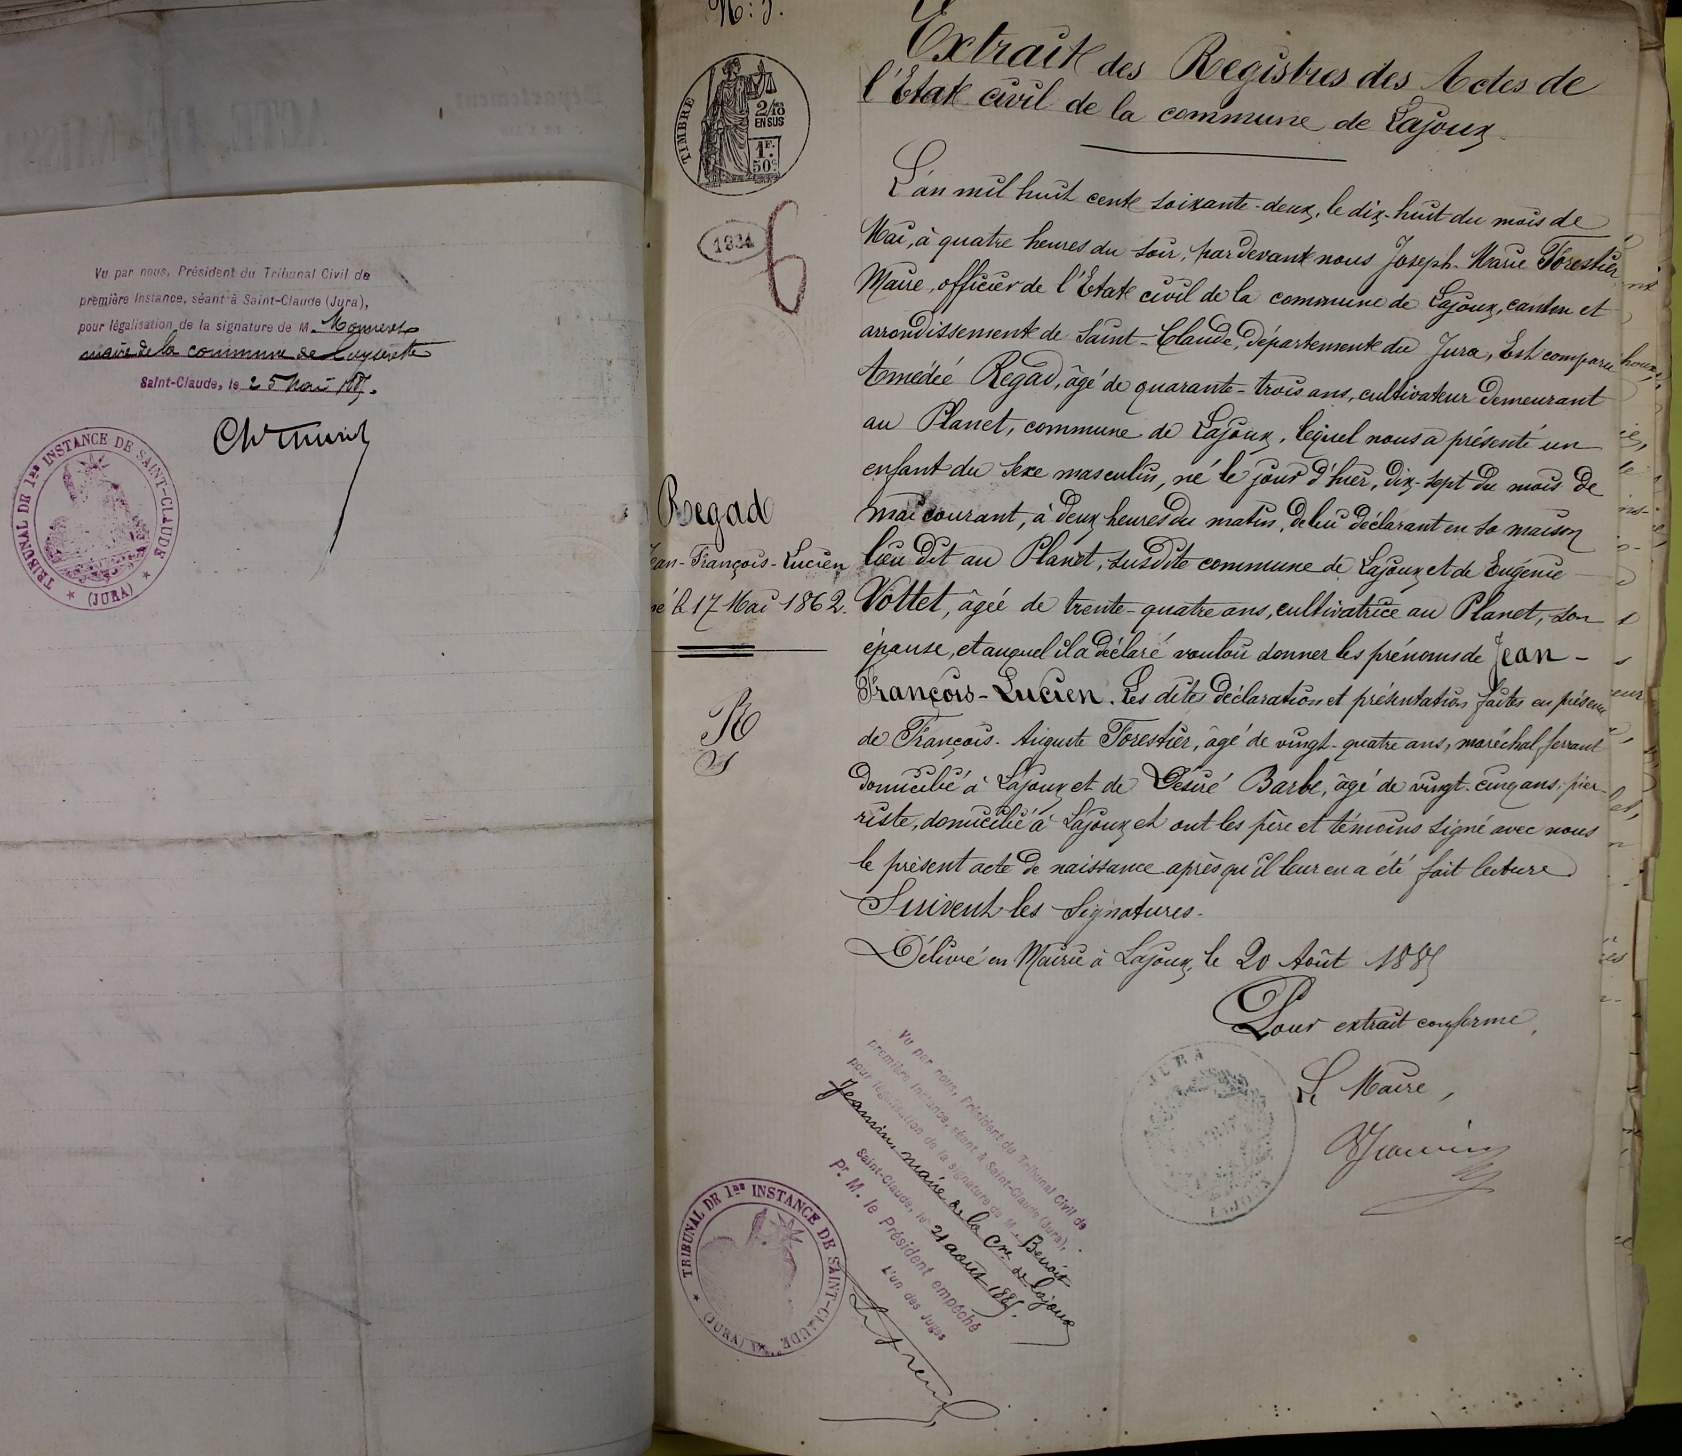 Vu par nous, Président du Tribunal Civil de
première Instance, séant à Saint-Claude (Jura),
pour légalisation de la signature de M.
maire de la commune de
Saint-Claude, le 25
TRIBUNAL DE 1re INSTANCE DE SAINT-CLAUDE
(JURA)
TIMBRE
2/10
EN SUS
1F.
50c
Extrait des Registres des Actes de
l'Etat civil de la commune de Lajoux
L'an mil huit cent soixante-deux, le dix-huit du mois de
Mai, à quatre heures du soir, par devant nous Joseph-Marie Forestier,
Maire, officier de l'Etat civil de la commune de Lajoux, canton et
arrondissement de Saint-Claude, département du Jura, Est comparu
Amédéé Regad, âgé de quarante-trois ans, cultivateur demeurant
au Planet, commune de Lajoux, lequel nous a présenté un
enfant du sexe masculin, né le jour d'hier, dix-sept du mois de
mai courant, à deux heures du matin, de lui déclarant en sa maison
lieu dit au Planet, susdite commune de Lajoux et de Eugénie
Vottet, âgée de trente-quatre ans, cultivatrice au Planet, son
épouse, et auquel il a déclaré vouloir donner les prénoms de Jean-
François-Lucien. Les dites déclaration et présentation faites en présence
de François-Auguste Forestier, âgé de vingt-quatre ans, maréchal ferrant
domicilié à Lajoux et de Désiré Barbe, âgé de vingt-cinq ans, pier-
riste, domicilié à Lajoux et ont les père et témoins signé avec nous
le présent acte de naissance après qu'il leur en a été fait lecture
Suivent les signatures.
Délivré en Mairie à Lajoux, le 20 Août 1885
Pour extrait conforme,
Le Maire,
Regad
Jean-François-Lucien
né le 17 Mai 1862.
6
JURA
LAJOUX
Vu par nous, Président du Tribunal Civil de
première Instance, séant à Saint-Claude (Jura),
pour légalisation de la signature de M. Benoit
Jeannin, maire de la Cne de Lajoux
Saint-Claude, le 21 août 1885.
Pr. M. le Président empêché
L'un des Juges
TRIBUNAL DE 1re INSTANCE DE SAINT-CLAUDE
(JURA)